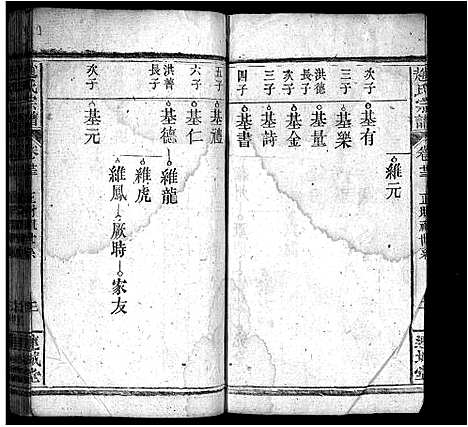 趙氏宗譜
卷芸
連城堂
維元
次子
基有
三子
基樂
洪德
長子
基量
次子
基金
三子
基詩
四子
基書
五子
基禮
六子
基仁
洪善
長子
基德
維龍
維虎
維鳳
厥時
家友
次子
基元
趙氏宗譜
連城堂